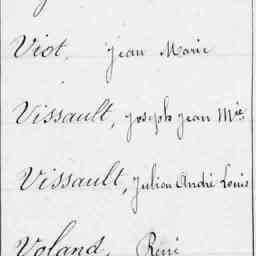 Viot, Jean Marie
Vissault, Joseph Jean Mie
Vissault, Julien André Louis
Voland, René